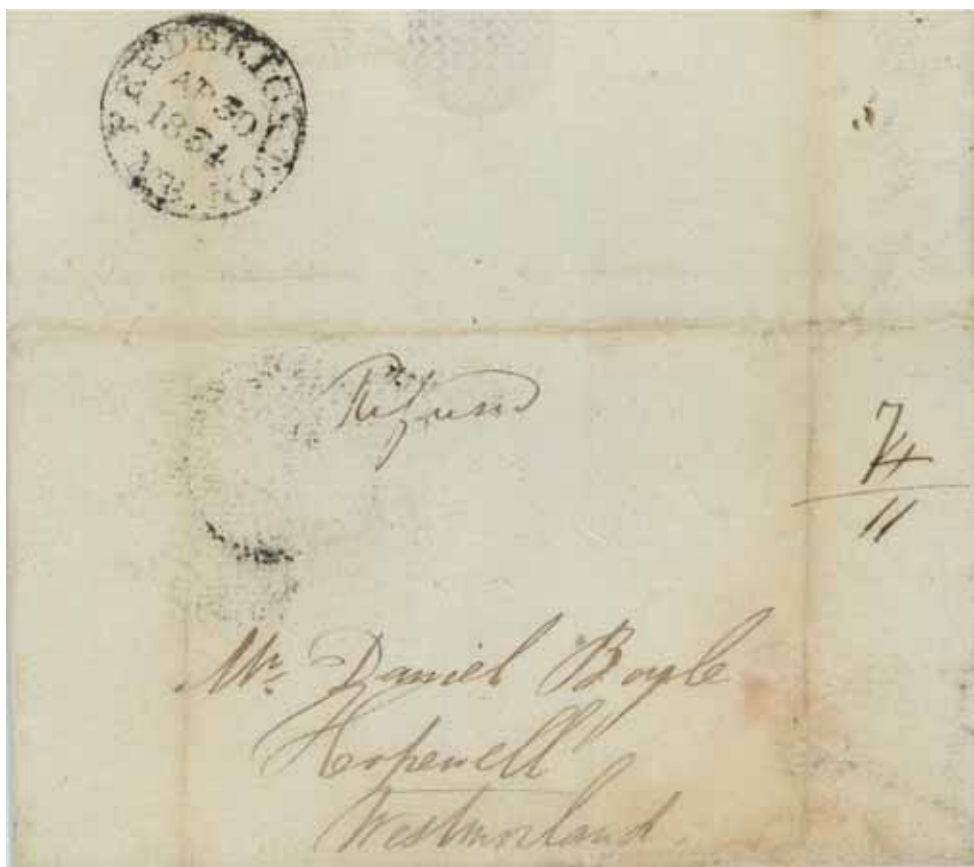 FREDERICKTON
AP 30
1834
N.B.
Refused
7
4
11
Mr. Daniel Boyle
Hopewell
Westmorland.